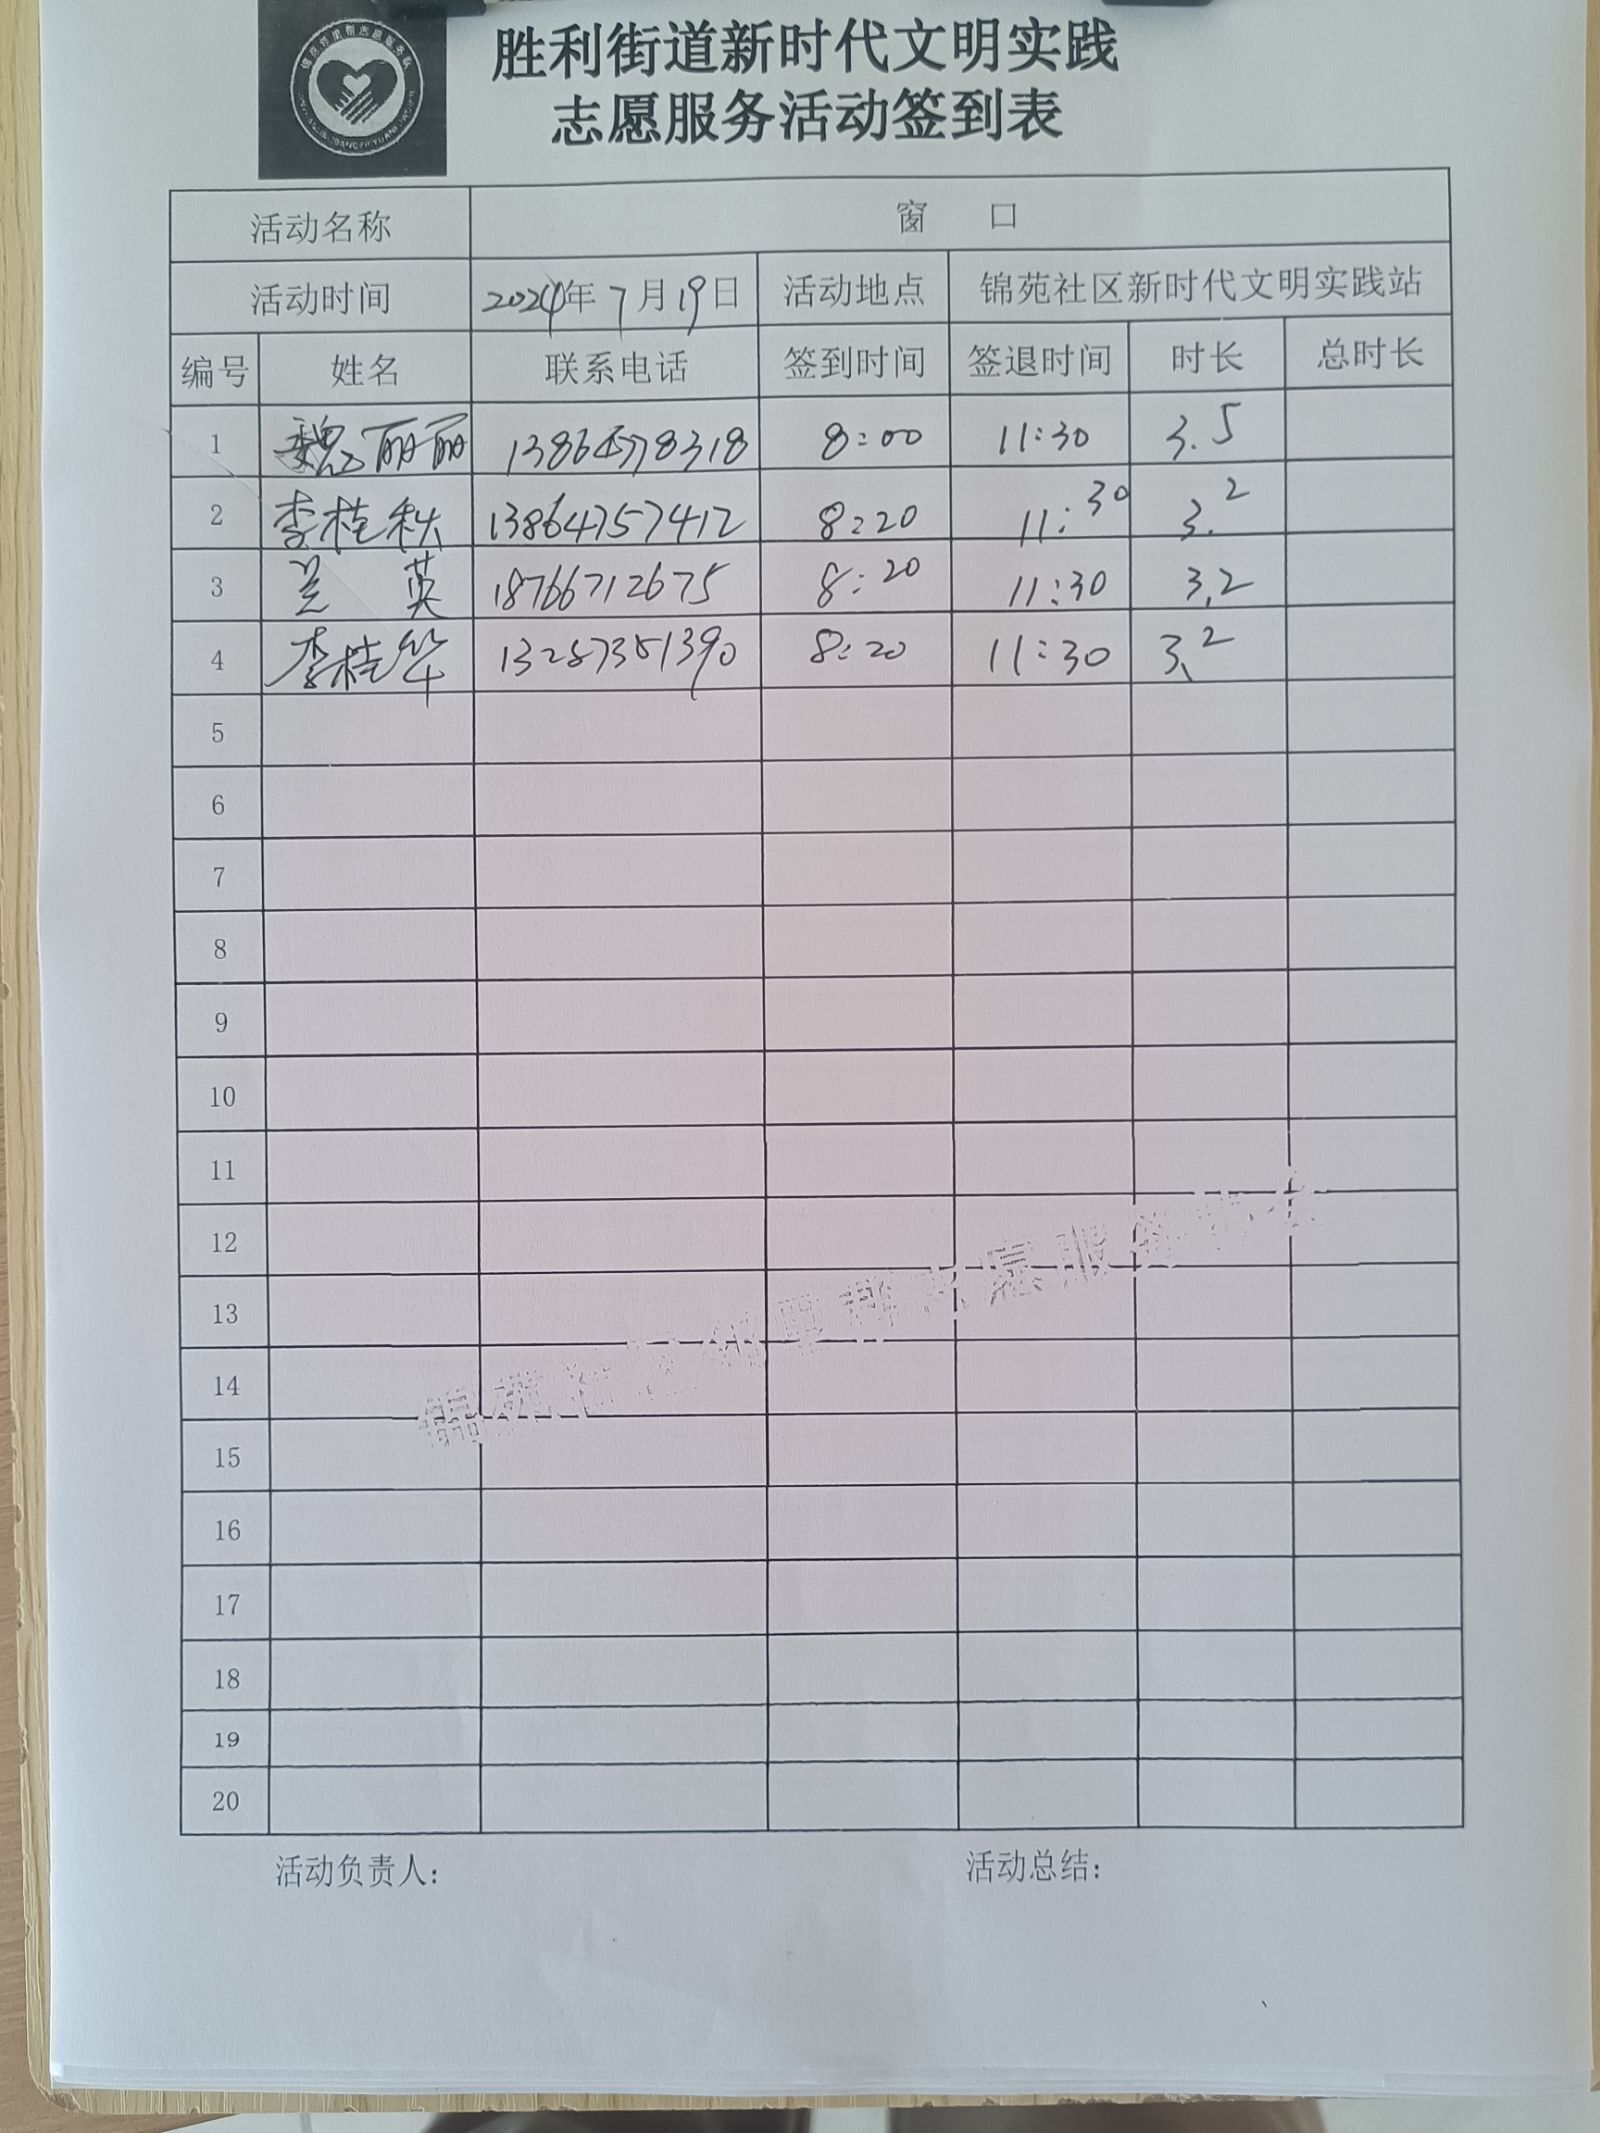 胜利街道新时代文明实践
志愿服务活动签到表
活动名称 窗 口
活动时间 2024年7月19日 活动地点 锦苑社区新时代文明实践站
编号 姓名 联系电话 签到时间 签退时间 时长 总时长
1 魏丽丽 13864778318 8:00 11:30 3.5
2 李桂秋 13864757412 8:20 11:30 3.2
3 兰英 18766712675 8:20 11:30 3.2
4 李桂华 13287381390 8:20 11:30 3.2
5
6
7
8
9
10
11
12
13
14
15
16
17
18
19
20
锦苑社区邻里帮志愿服务
活动负责人: 活动总结: